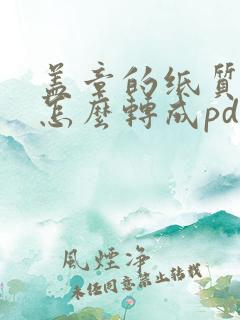 盖章的纸质
怎麼轉成pd
風煙净
未经同意禁止转载